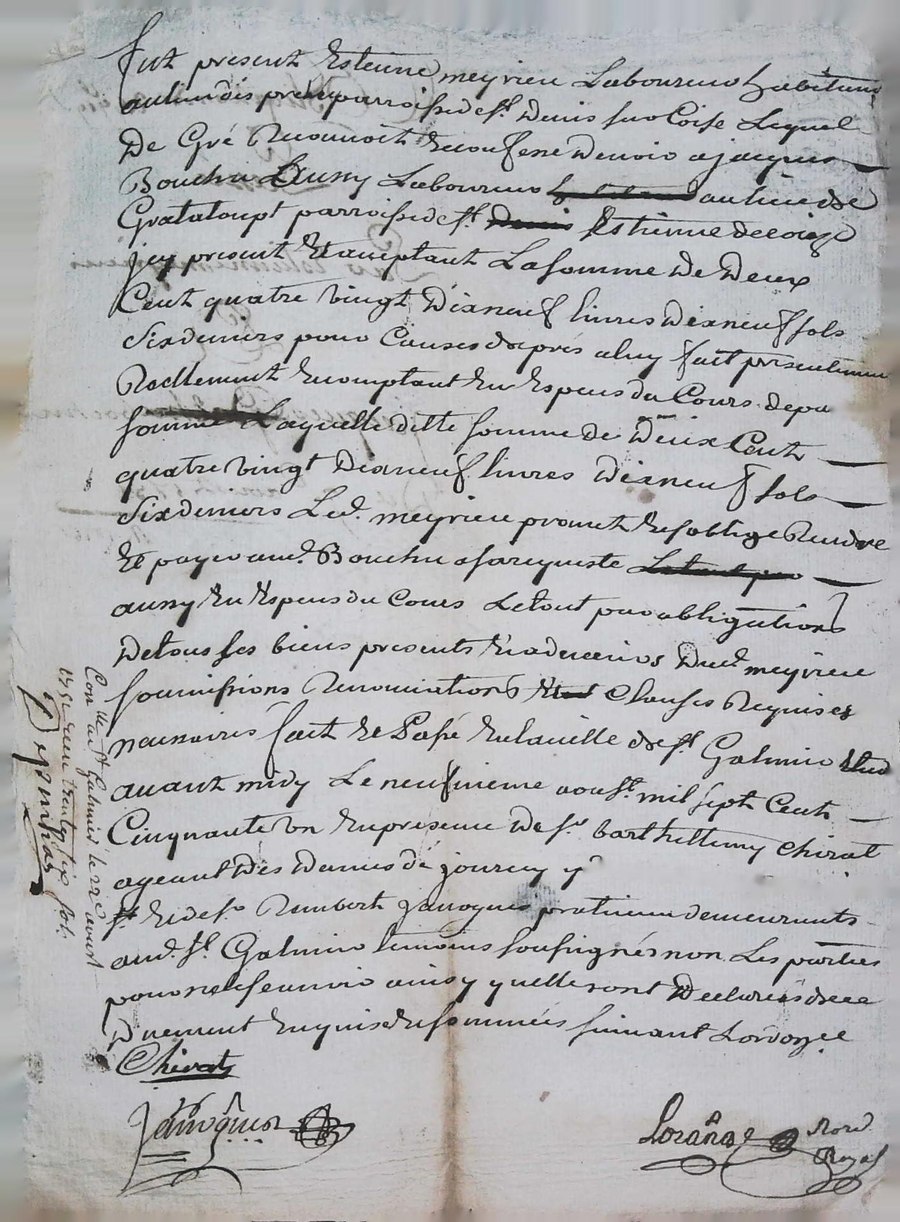 fut present Estienne meyrieu Laboureur habitant
au lieu dis presle parroisse de st. Denis sur Coise Lequel
De Gré Reconnoit Et confesse Devoir a jacques
Bouchu Launy Laboureur au lieu de
Grataloupt parroisse de st. Estienne de coize
jcy present Et acceptant La somme De Deux
Cent quatre vingt Dixneuf livres Dixneuf sols
Six deniers pour Causes de prés a luy fait presentement
Reellement Et comptant En Especes du Cours
Laquelle ditte somme de Deux Cent
quatre vingt Dixneuf livres Dixneuf sols
Six deniers Led. meyrieu promet Et soblige Rendre
Et payer aud. Bouchu a sa requiste
auny En Especes du Cours Le tout par obligations
De tous ses biens presents Et advenirs Dud. meyrieu
soumissions Renonciations Clauses Requises
necessaires fait Et Passé En la ville de st. Galmier
avant midy Le neufvieme aoust mil sept Cent
Cinquante un En presence De sr. barthellemy Chirat
ageant Des Dames de jourcey
Et de sr. Rambert Janoyes praticien demeurants
aud. st. Galmier temoins soussignés non Les parties
pour ne scavoir ainsy quelle ont Declarées
Duement Enquises Et sommées suivant Lordonce
Chirat
Janoyes
Lorange Nore
Royal
Con lle a st Galmier le 22 aoust
1751 Reçu trente six sols